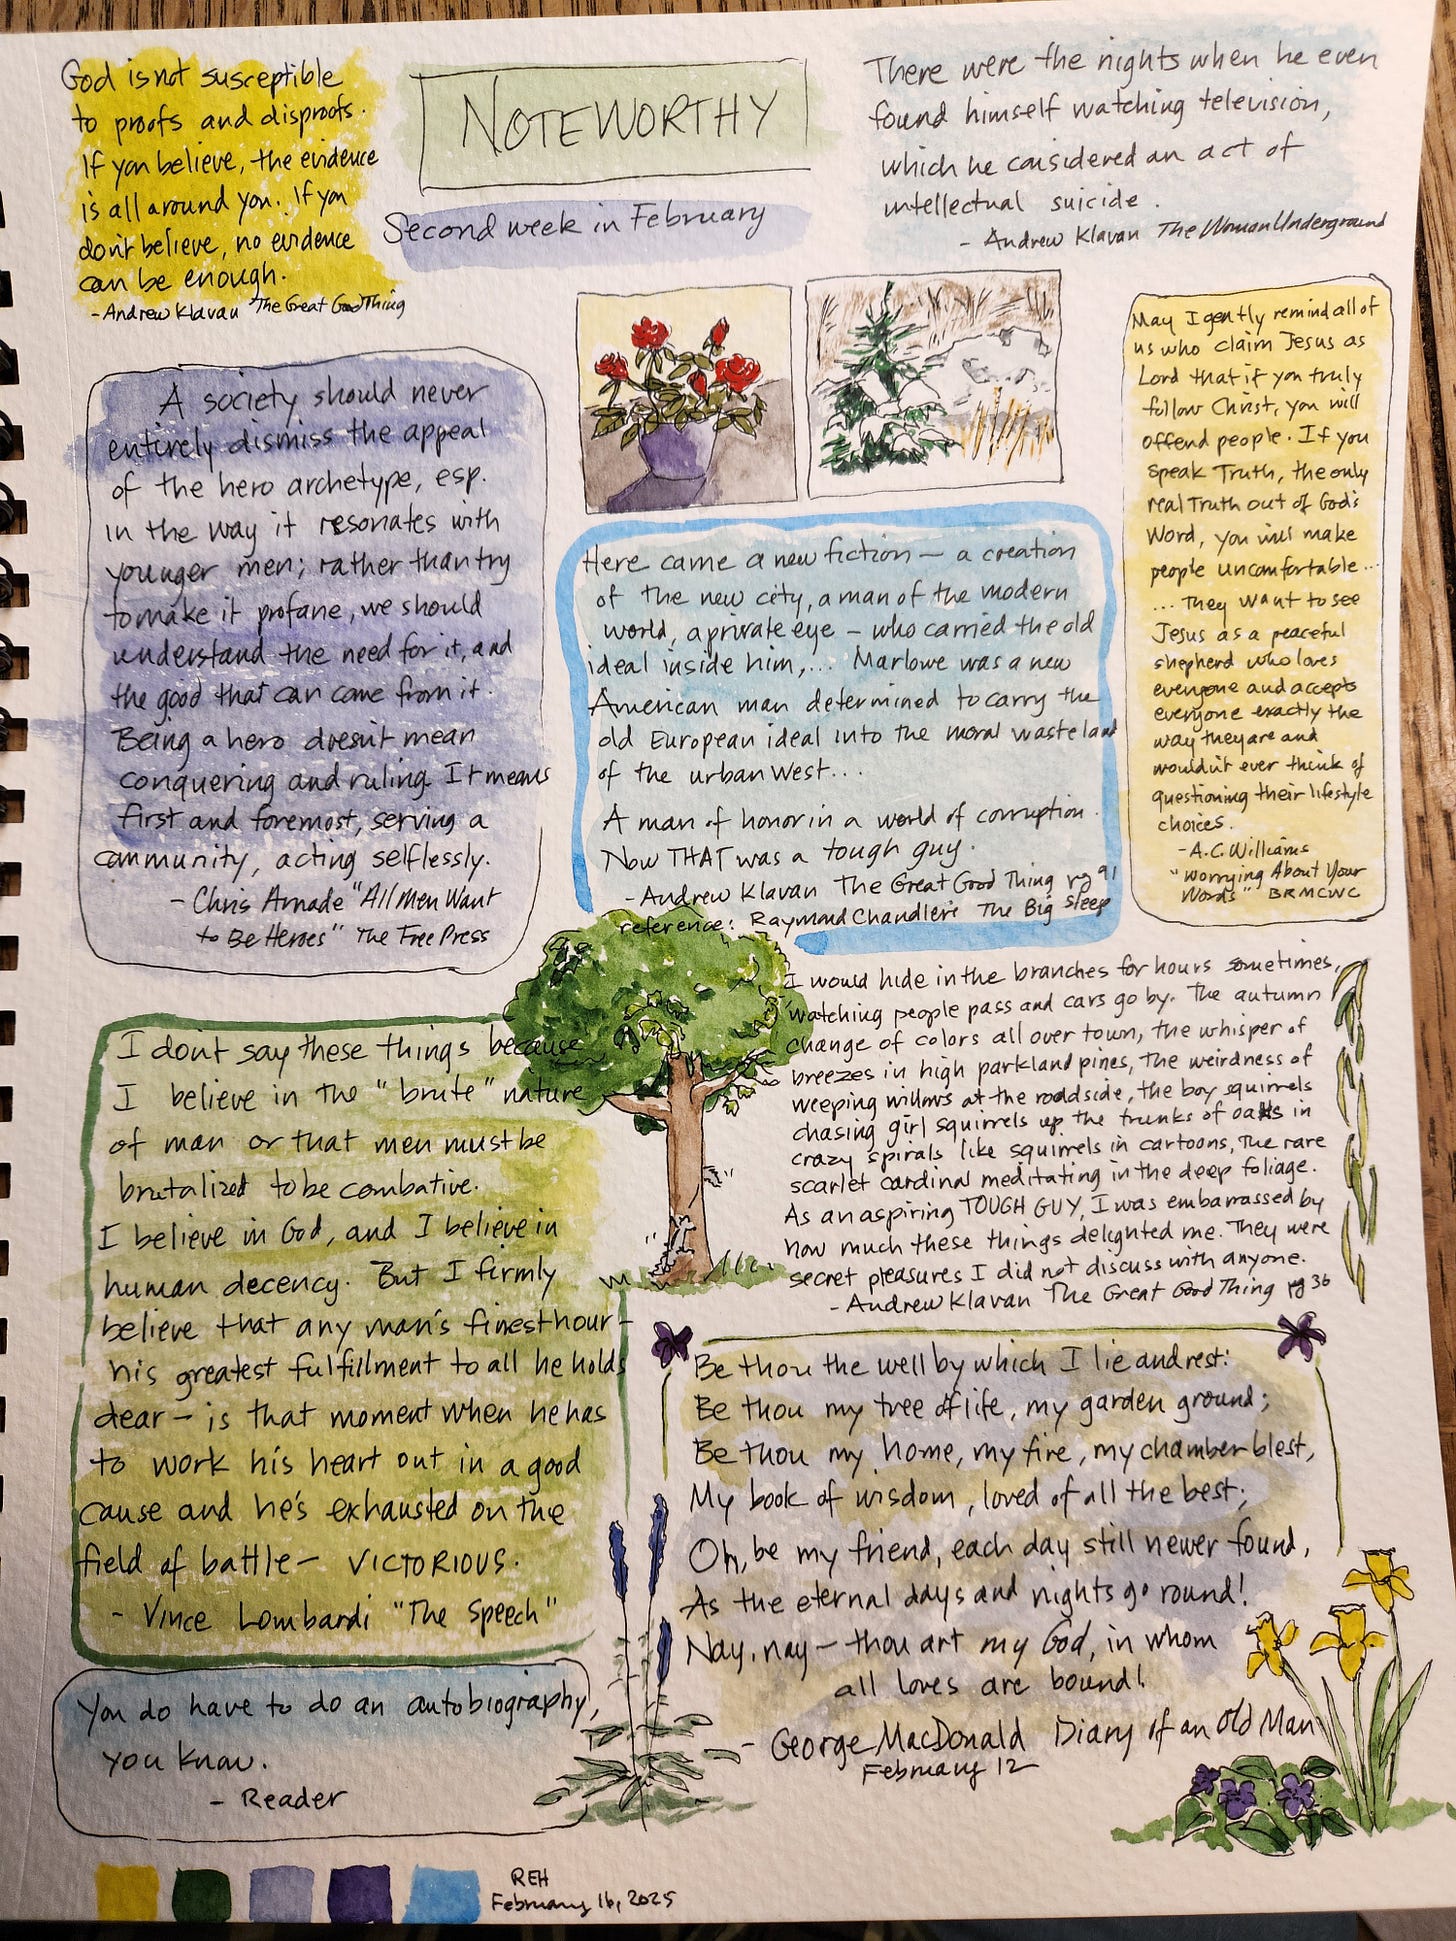 God is not susceptible
to proofs and disproofs.
If you believe, the evidence
is all around you. If you
don't believe, no evidence
can be enough.
- Andrew Klavan "The Great Good Thing
NOTEWORTHY
Second week in February
There were the nights when he even
found himself watching television,
which he considered an act of
intellectual suicide.
- Andrew Klavan The Woman Underground
A society should never
entirely dismiss the appeal
of the hero archetype, esp.
in the way it resonates with
younger men; rather than try
to make it profane, we should
understand the need for it, and
the good that can come from it.
Being a hero doesn't mean
conquering and ruling. It means
first and foremost, serving a
community, acting selflessly.
- Chris Arnade "All Men Want
to Be Heroes" The Free Press
Here came a new fiction — a creation
of the new city, a man of the modern
world, a private eye — who carried the old
ideal inside him,... Marlowe was a new
American man determined to carry the
old European ideal into the moral wasteland
of the urban West...
A man of honor in a world of corruption.
Now THAT was a tough guy.
- Andrew Klavan The Great Good Thing pg 91
reference: Raymond Chandler's The Big Sleep
May I gently remind all of
us who claim Jesus as
Lord that if you truly
follow Christ, you will
offend people. If you
speak Truth, the only
real Truth out of God's
Word, you will make
people uncomfortable...
... They want to see
Jesus as a peaceful
shepherd who loves
everyone and accepts
everyone exactly the
way they are and
wouldn't ever think of
questioning their lifestyle
choices.
- A.C. Williams
"Worrying About Your
Words" BRMCWC
I would hide in the branches for hours sometimes,
watching people pass and cars go by. The autumn
change of colors all over town, the whisper of
breezes in high parkland pines, the weirdness of
weeping willows at the roadside, the boy squirrels
chasing girl squirrels up the trunks of oaks in
crazy spirals like squirrels in cartoons, the rare
scarlet cardinal meditating in the deep foliage.
As an aspiring TOUGH GUY, I was embarrassed by
how much these things delighted me. They were
secret pleasures I did not discuss with anyone.
- Andrew Klavan The Great Good Thing pg 36
I don't say these things because
I believe in the "brute" nature
of man or that men must be
brutalized to be combative.
I believe in God, and I believe in
human decency. But I firmly
believe that any man's finest hour -
his greatest fulfillment to all he holds
dear — is that moment when he has
to work his heart out in a good
cause and he's exhausted on the
field of battle — VICTORIOUS.
- Vince Lombardi "The Speech"
Be thou the well by which I lie and rest:
Be thou my tree of life, my garden ground;
Be thou my home, my fire, my chamber blest,
My book of wisdom, loved of all the best;
Oh, be my friend, each day still newer found,
As the eternal days and nights go round!
Nay, nay — thou art my God, in whom
all loves are bound!
- George MacDonald Diary of an Old Man
February 12
You do have to do an autobiography,
you know.
- Reader
REH
February 16, 2025